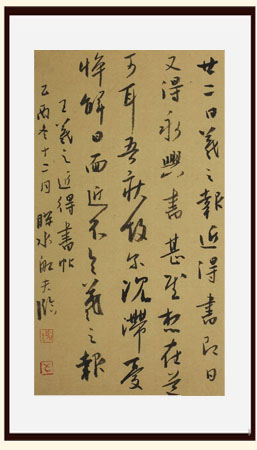 廿二日羲之報近得書即日
又得永興書甚慰想在道
可耳吾疾故尔沉滯憂
悴解日面近不具羲之報
王羲之近得書帖
乙酉冬十二月 水 夫臨